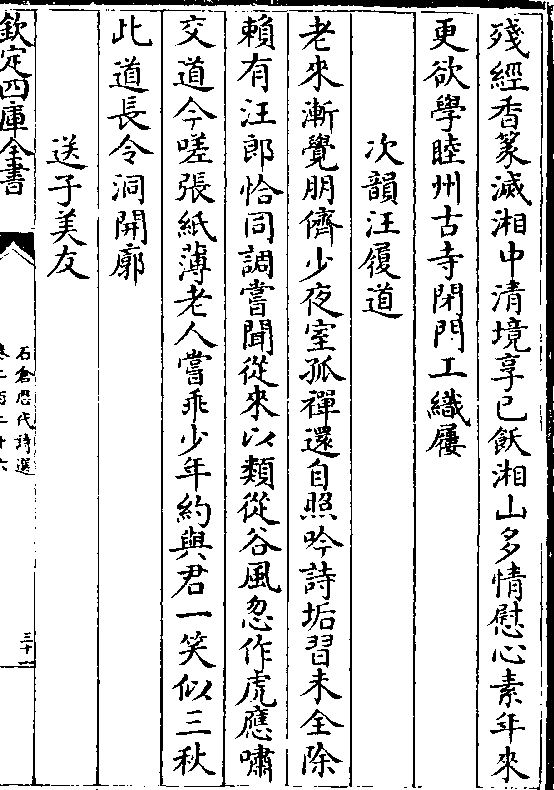 殘經香篆滅湘中清境享已飫湘山多情慰心素年來
更欲學睦州古寺閉門工織屨
次韻汪履道
老來漸覺朋儕少夜室孤禪還自照吟詩垢習未全除
賴有汪郎恰同調嘗聞從來以類從谷風忽作虎應嘯
交道今嗟張紙薄老人嘗乖少年約與君一笑似三秋
此道長令洞開廓
送子美友
欽定四庫全書
石倉歷代詩選
卷二百二十六
三十一